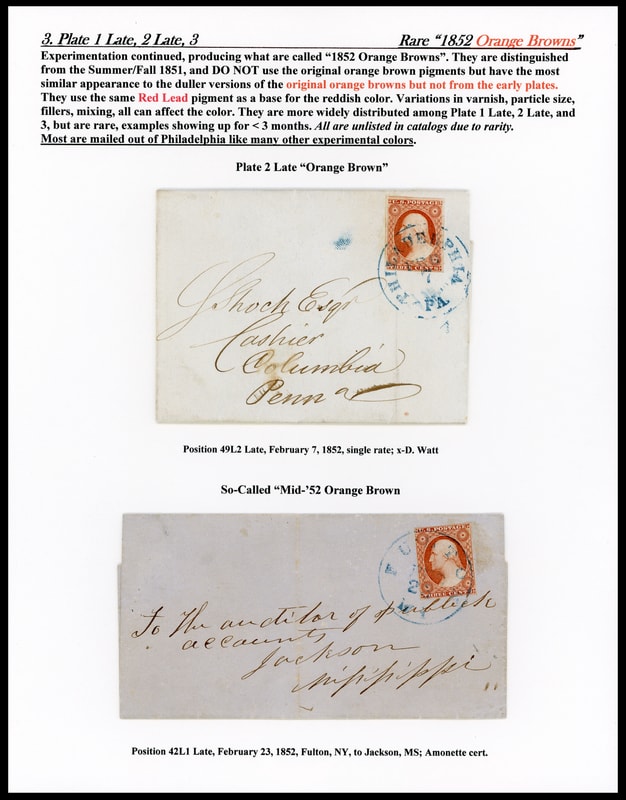 3. Plate 1 Late, 2 Late, 3
Rare "1852 Orange Browns"
Experimentation continued, producing what are called "1852 Orange Browns". They are distinguished
from the Summer/Fall 1851, and DO NOT use the original orange brown pigments but have the most
similar appearance to the duller versions of the original orange browns but not from the early plates.
They use the same Red Lead pigment as a base for the reddish color. Variations in varnish, particle size,
fillers, mixing, all can affect the color. They are more widely distributed among Plate 1 Late, 2 Late, and
3, but are rare, examples showing up for < 3 months. All are unlisted in catalogs due to rarity.
Most are mailed out of Philadelphia like many other experimental colors.
Plate 2 Late "Orange Brown"
U.S. POSTAGE
THREE CENTS
PHILADELPHIA
7
PA
Shoch Esqr
Cashier
Columbia
Penna
Position 49L2 Late, February 7, 1852, single rate; x-D. Watt
So-Called "Mid-'52 Orange Brown
U.S. POSTAGE
THREE CENTS
To the auditor of publick
accounts
Jackson
Mississippi
Position 42L1 Late, February 23, 1852, Fulton, NY, to Jackson, MS; Amonette cert.